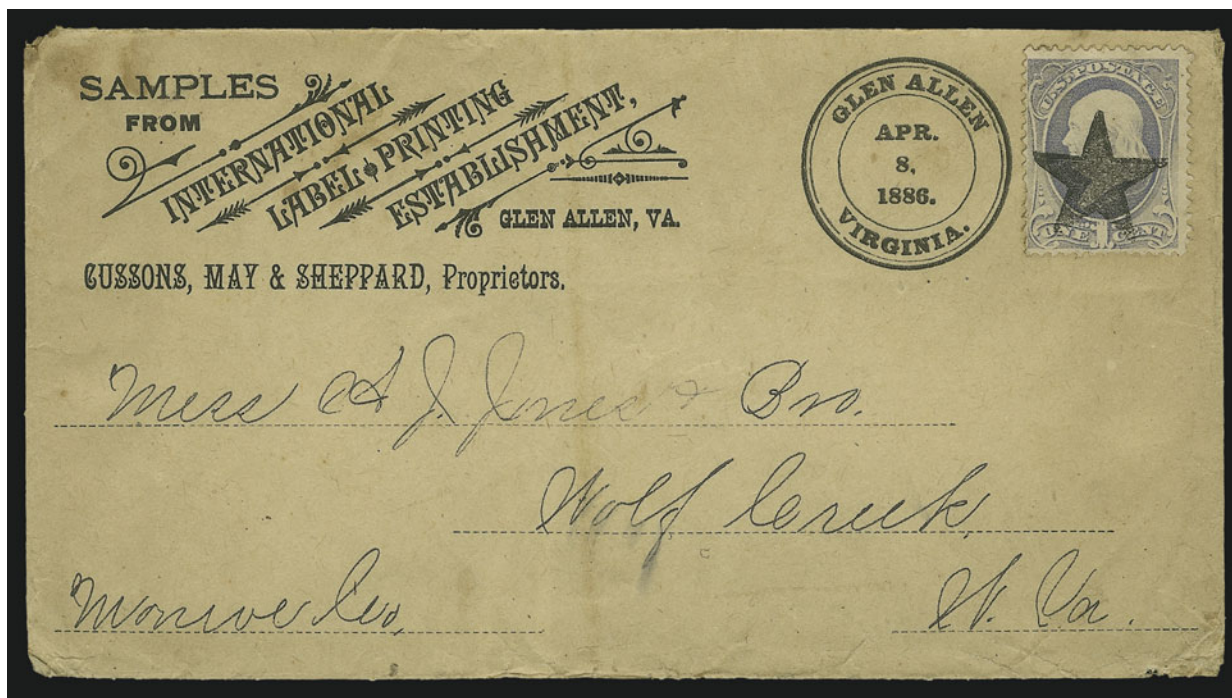 SAMPLES
FROM
INTERNATIONAL
LABEL & PRINTING
ESTABLISHMENT,
GLEN ALLEN, VA.
CUSSONS, MAY & SHEPPARD, Proprietors.
GLEN ALLEN
APR.
8,
1886.
VIRGINIA.
U.S. POSTAGE
ONE CENT
Mess A J. Jones & Bro.
Wolf Creek,
Monroe Co,
W. Va.